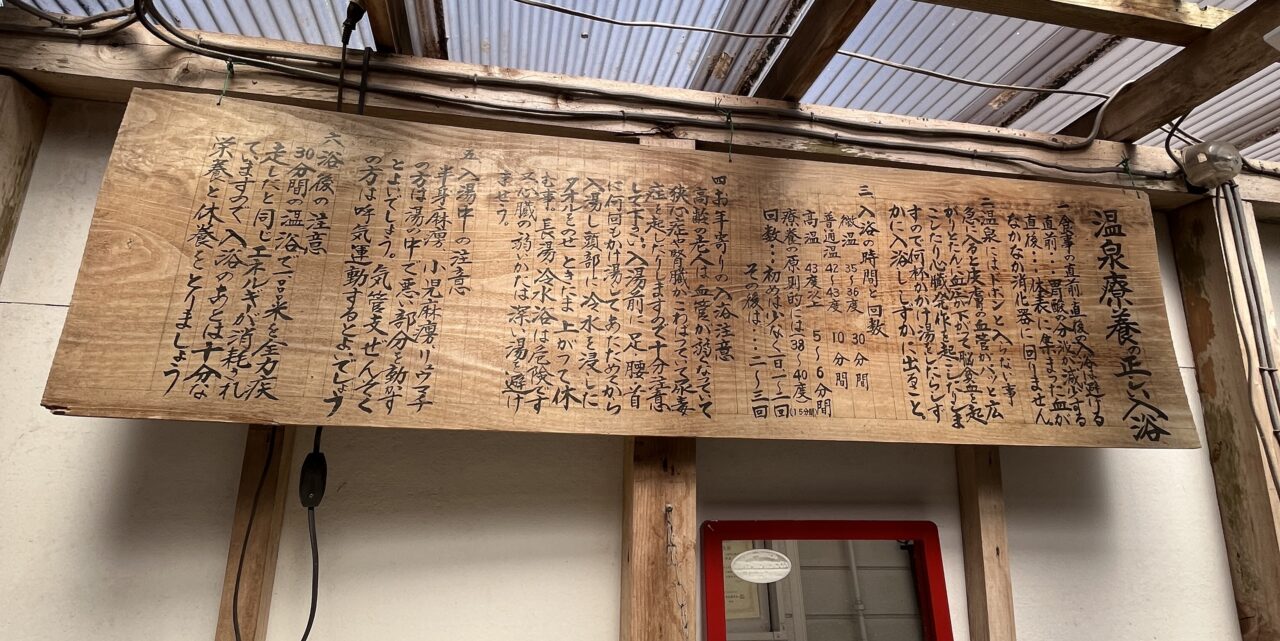 温泉療養の正しい入浴
一 食事の直前直後の入浴は避ける
直前‥‥胃酸の分泌が減少する
直後‥‥体表に集まった血が
なかなか消化器に回りません
二 温泉にはドボンと入らない事
急に入ると皮膚の血管がパッと広
がりますため血圧が下がって脳貧血を起
こしたり心臓発作を起こしたりしま
すので何杯かかけ湯をしたらしず
かに入浴ししずかに出ること
三 入浴の時間と回数
微温 35〜38度 30分間
普通温 42〜43度 10分間
高温 43度以上 5〜6分間
療養の原則的には38〜40度(15分間)
回数‥‥初めは少なく一日一〜二回
その後は‥‥二〜三回
四 お年寄りの入浴注意
高齢の老人は血管が弱くなっていて
狭心症や腎臓がこわばって尿毒
症を起したりしますので十分注意
して下さい 入湯前に足 腰 首
に何回もかけ湯してあたためてから
入湯し頭部に冷水を浸した
タオルをのせときたま上がって休
む事 長湯 冷水浴は危険です
又心臓の弱いかたは深い湯を避け
ませう。
五 入湯中の注意
半身麻痺 小児麻痺 リウマチ
の方は湯の中で悪い部分を動かす
とよいでしょう。気管支ぜんそく
の方は呼気運動するとよいでしょう
六 浴後の注意
30分間の温浴で一〇〇米を全力疾
走したと同じエネルギが消耗され
てますので入浴のあとは十分な
栄養と休養をとりましょう